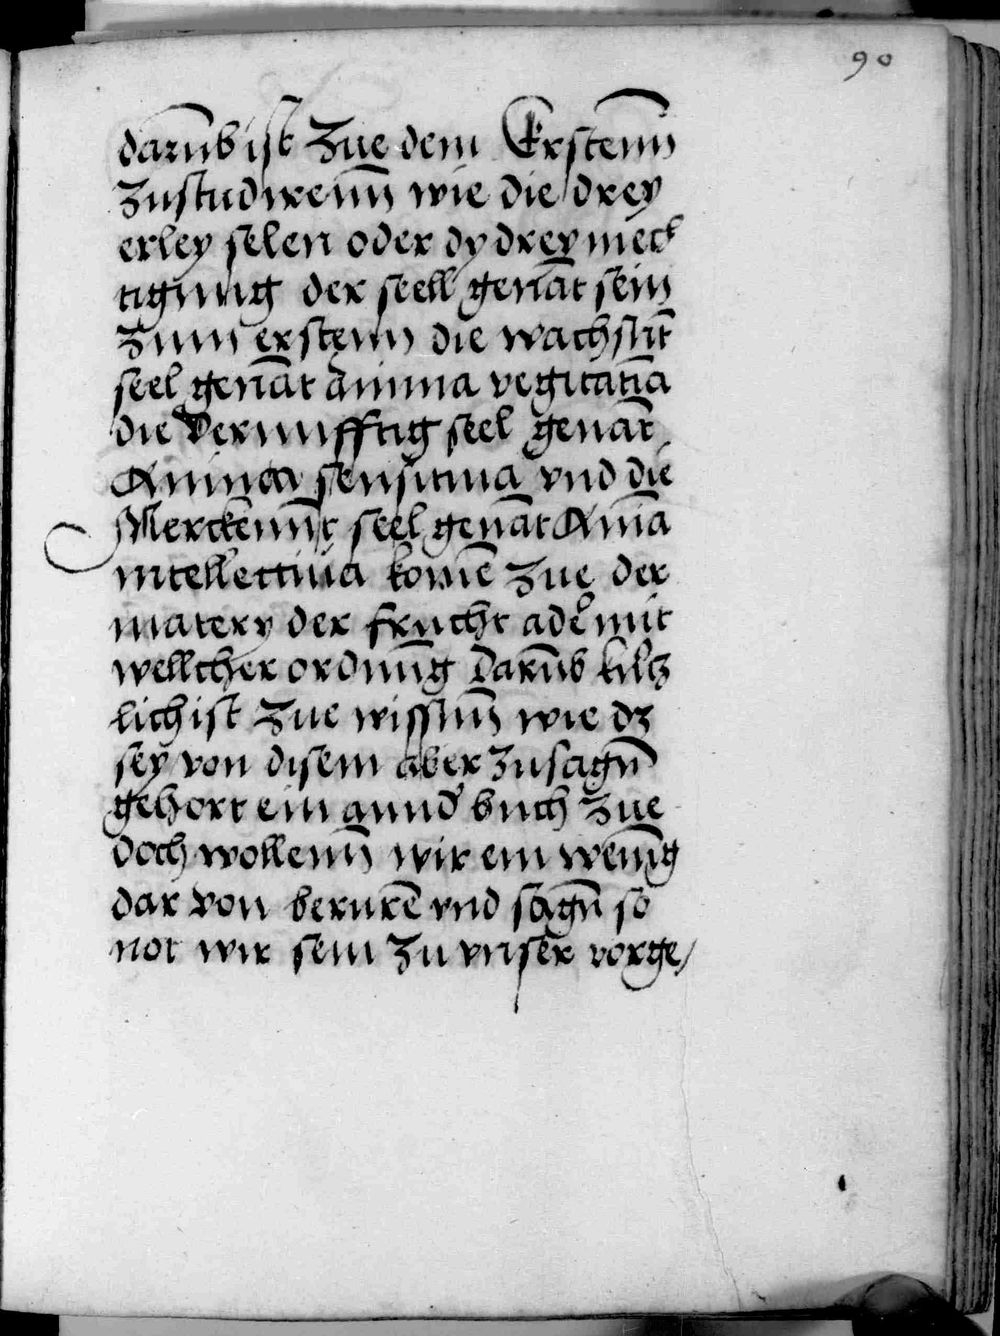 90
darūb ist Zue dem Erstenn̄
Zustudirenn̄ wie die drey
erley selen oder dy drey mech
tigung der seell genāt sein
Zum erstenn die wachsūt
seel genāt anima vegitatīa
die vernunfftig seel genāt
Anima sensitiua vnd die
Merckenn̄t seel genāt Anīa
intellectiua komē Zue der
matery der frucht ader mit
wellcher ordnūg Darūb
lich ist Zue wissenn̄ wie dz
sey von disem aber Zusagn̄
gehort ein annd' buch Zue
doch wollenn̄ wir ein wenīg
dar von berurē vnd sagn̄ so
not wir sein Zu vnser vorge/